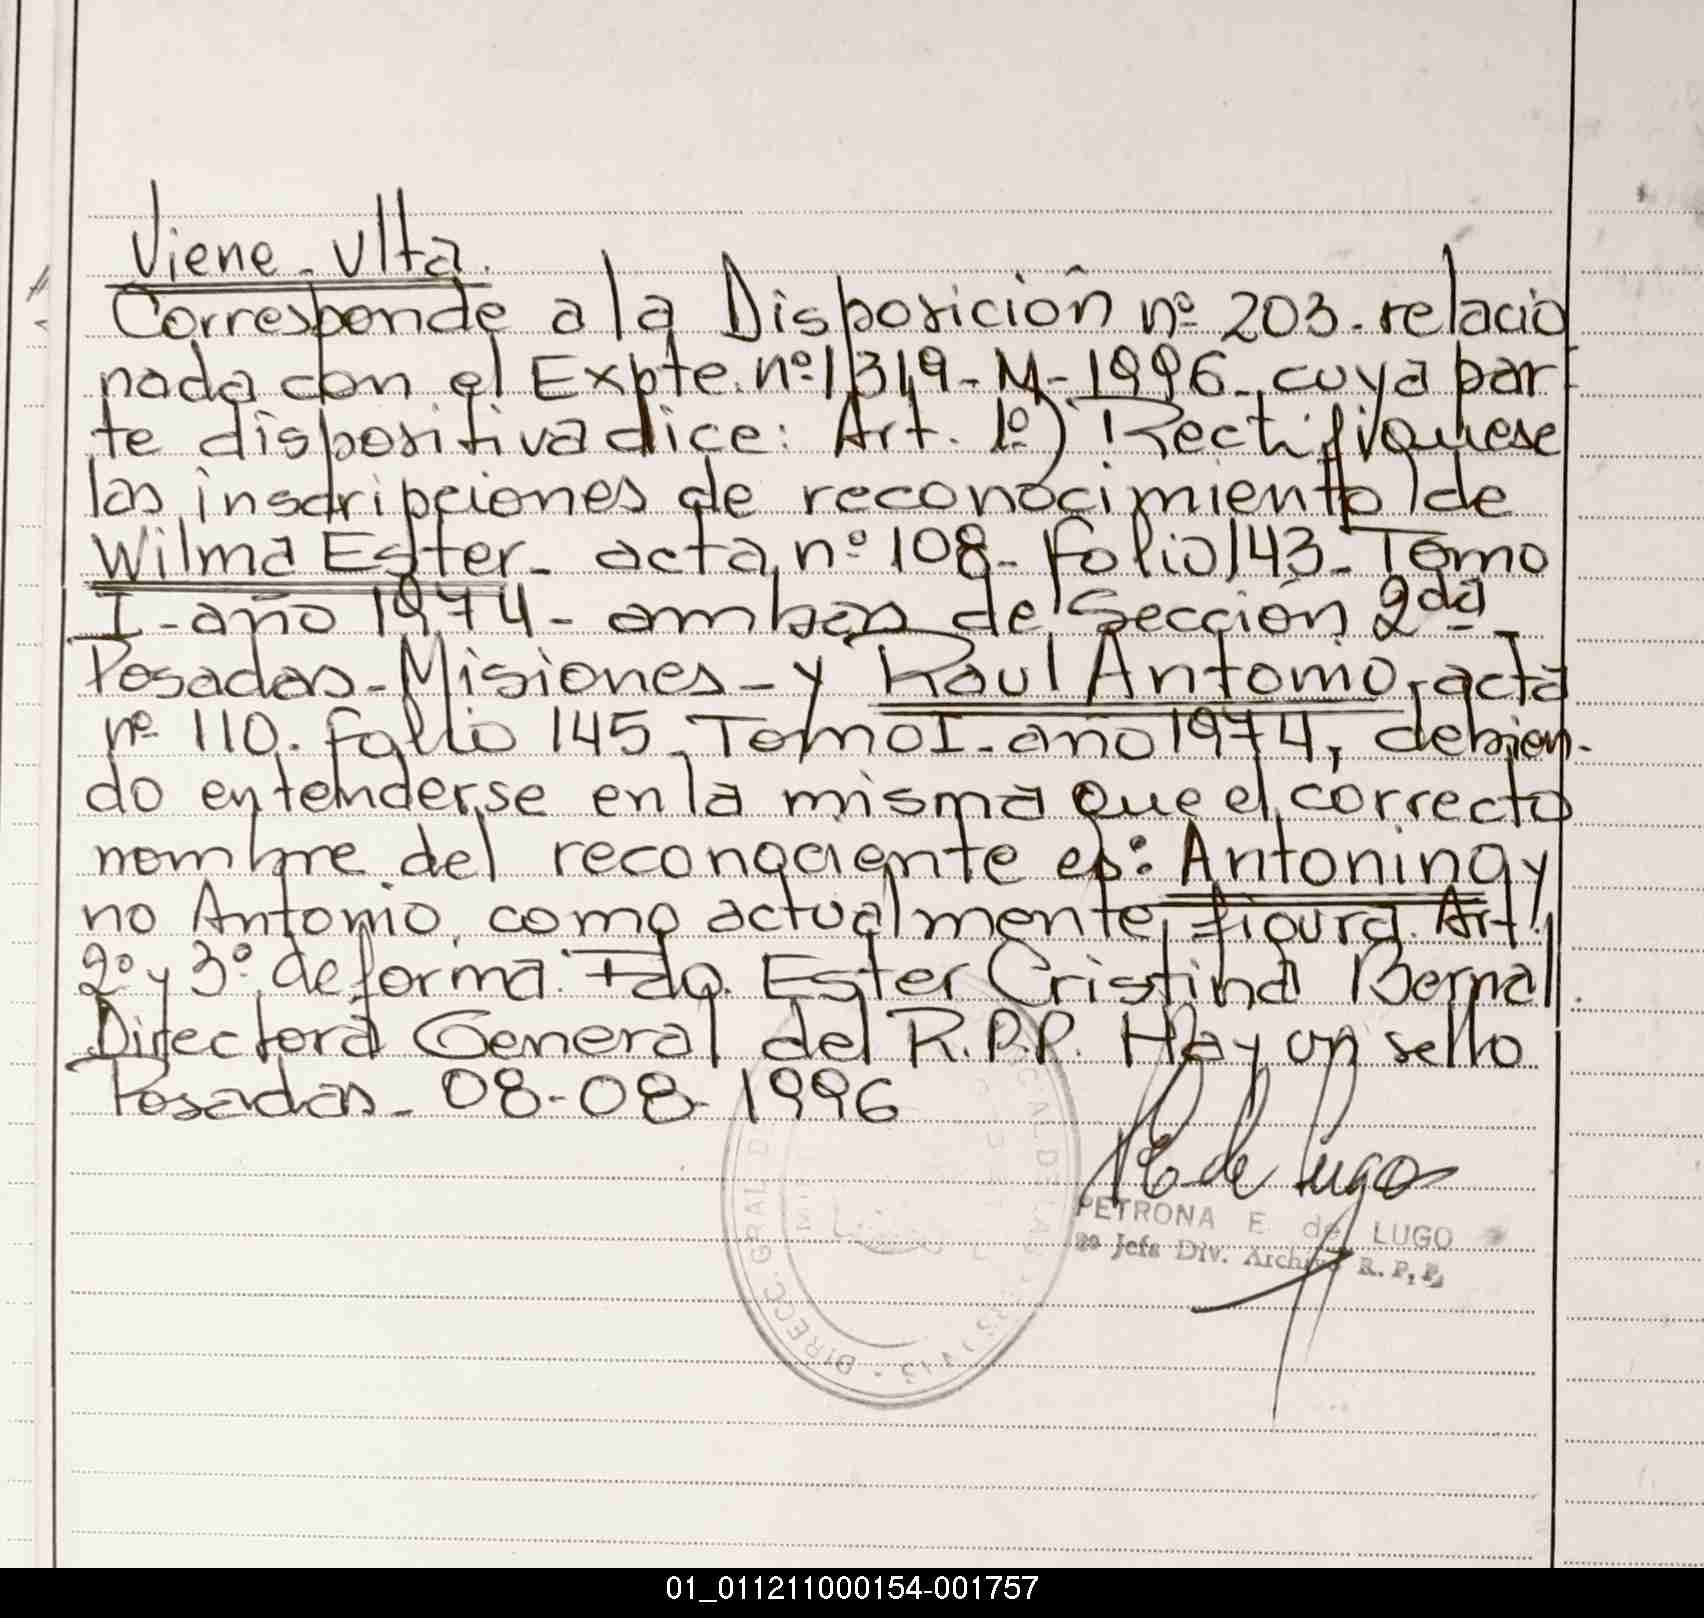 Viene vlta.
Corresponde a la Disposición nº 203. relacio
nada con el Expte. nº 1319-M-1996. cuya par
te dispositiva dice: Art. 1º) Rectifíquese
las inscripciones de reconocimiento de
Wilma Ester- acta nº 108- Folio 143- Tomo
I-año 1974- ambas de Sección 2da
Posadas-Misiones-y Raul Antonio, acta
nº 110. Folio 145-Tomo I-año 1974, debien-
do entenderse en la misma que el correcto
nombre del reconociente es: Antonino y
no Antonio, como actualmente figura. Art.
2º y 3º de forma. Fdo. Ester Cristina Bernal
Directora General del R.P.P. Hay un sello
Posadas- 08-08-1996
P E de Lugo
PETRONA E. de LUGO
2º Jefa Div. Archivo R. P. P.
DIRECC. GRAL D
01_011211000154-001757